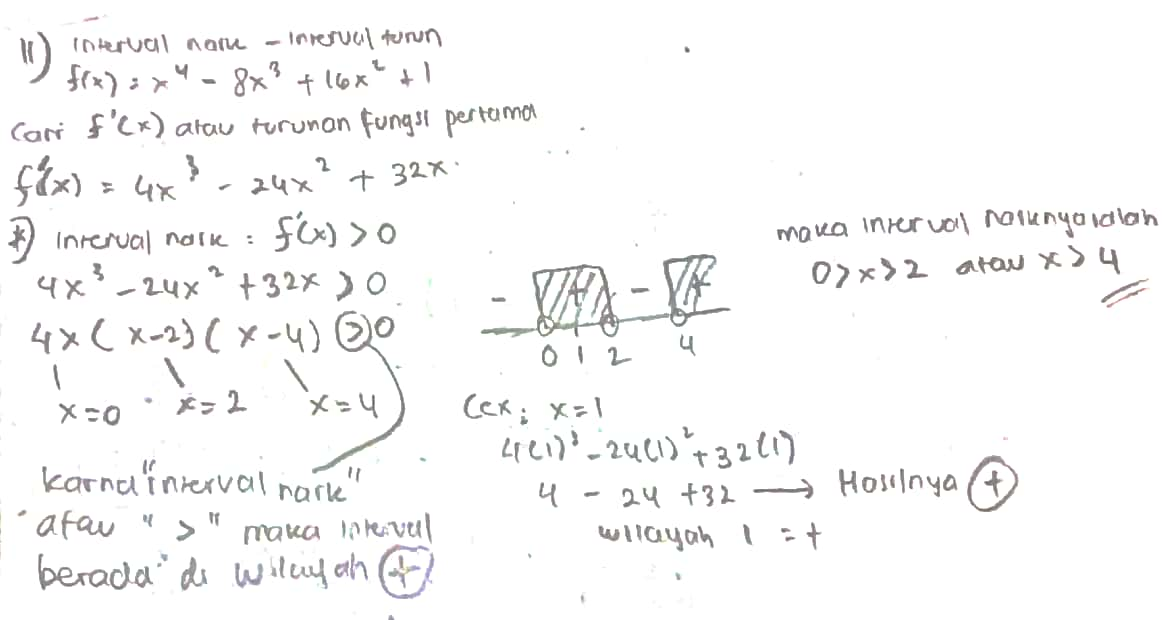 11) Interval naik - Interval turun
f(x) = x⁴ - 8x³ + 16x² + 1
Cari f'(x) atau turunan fungsi pertama
f'(x) = 4x³ - 24x² + 32x.
*) Interval naik : f'(x) > 0
4x³ - 24x² + 32x > 0
4x ( x-2) ( x-4) > 0
x=0 x=2 x=4
karna "interval naik"
atau ">" maka interval
berada di wilayah +
- + - +
0 1 2 4
Cek ; x=1
4(1)³ - 24(1)² + 32(1)
4 - 24 + 32 → Hasilnya +
wilayah 1 = +
maka interval naiknya ialah
0>x>2 atau x>4